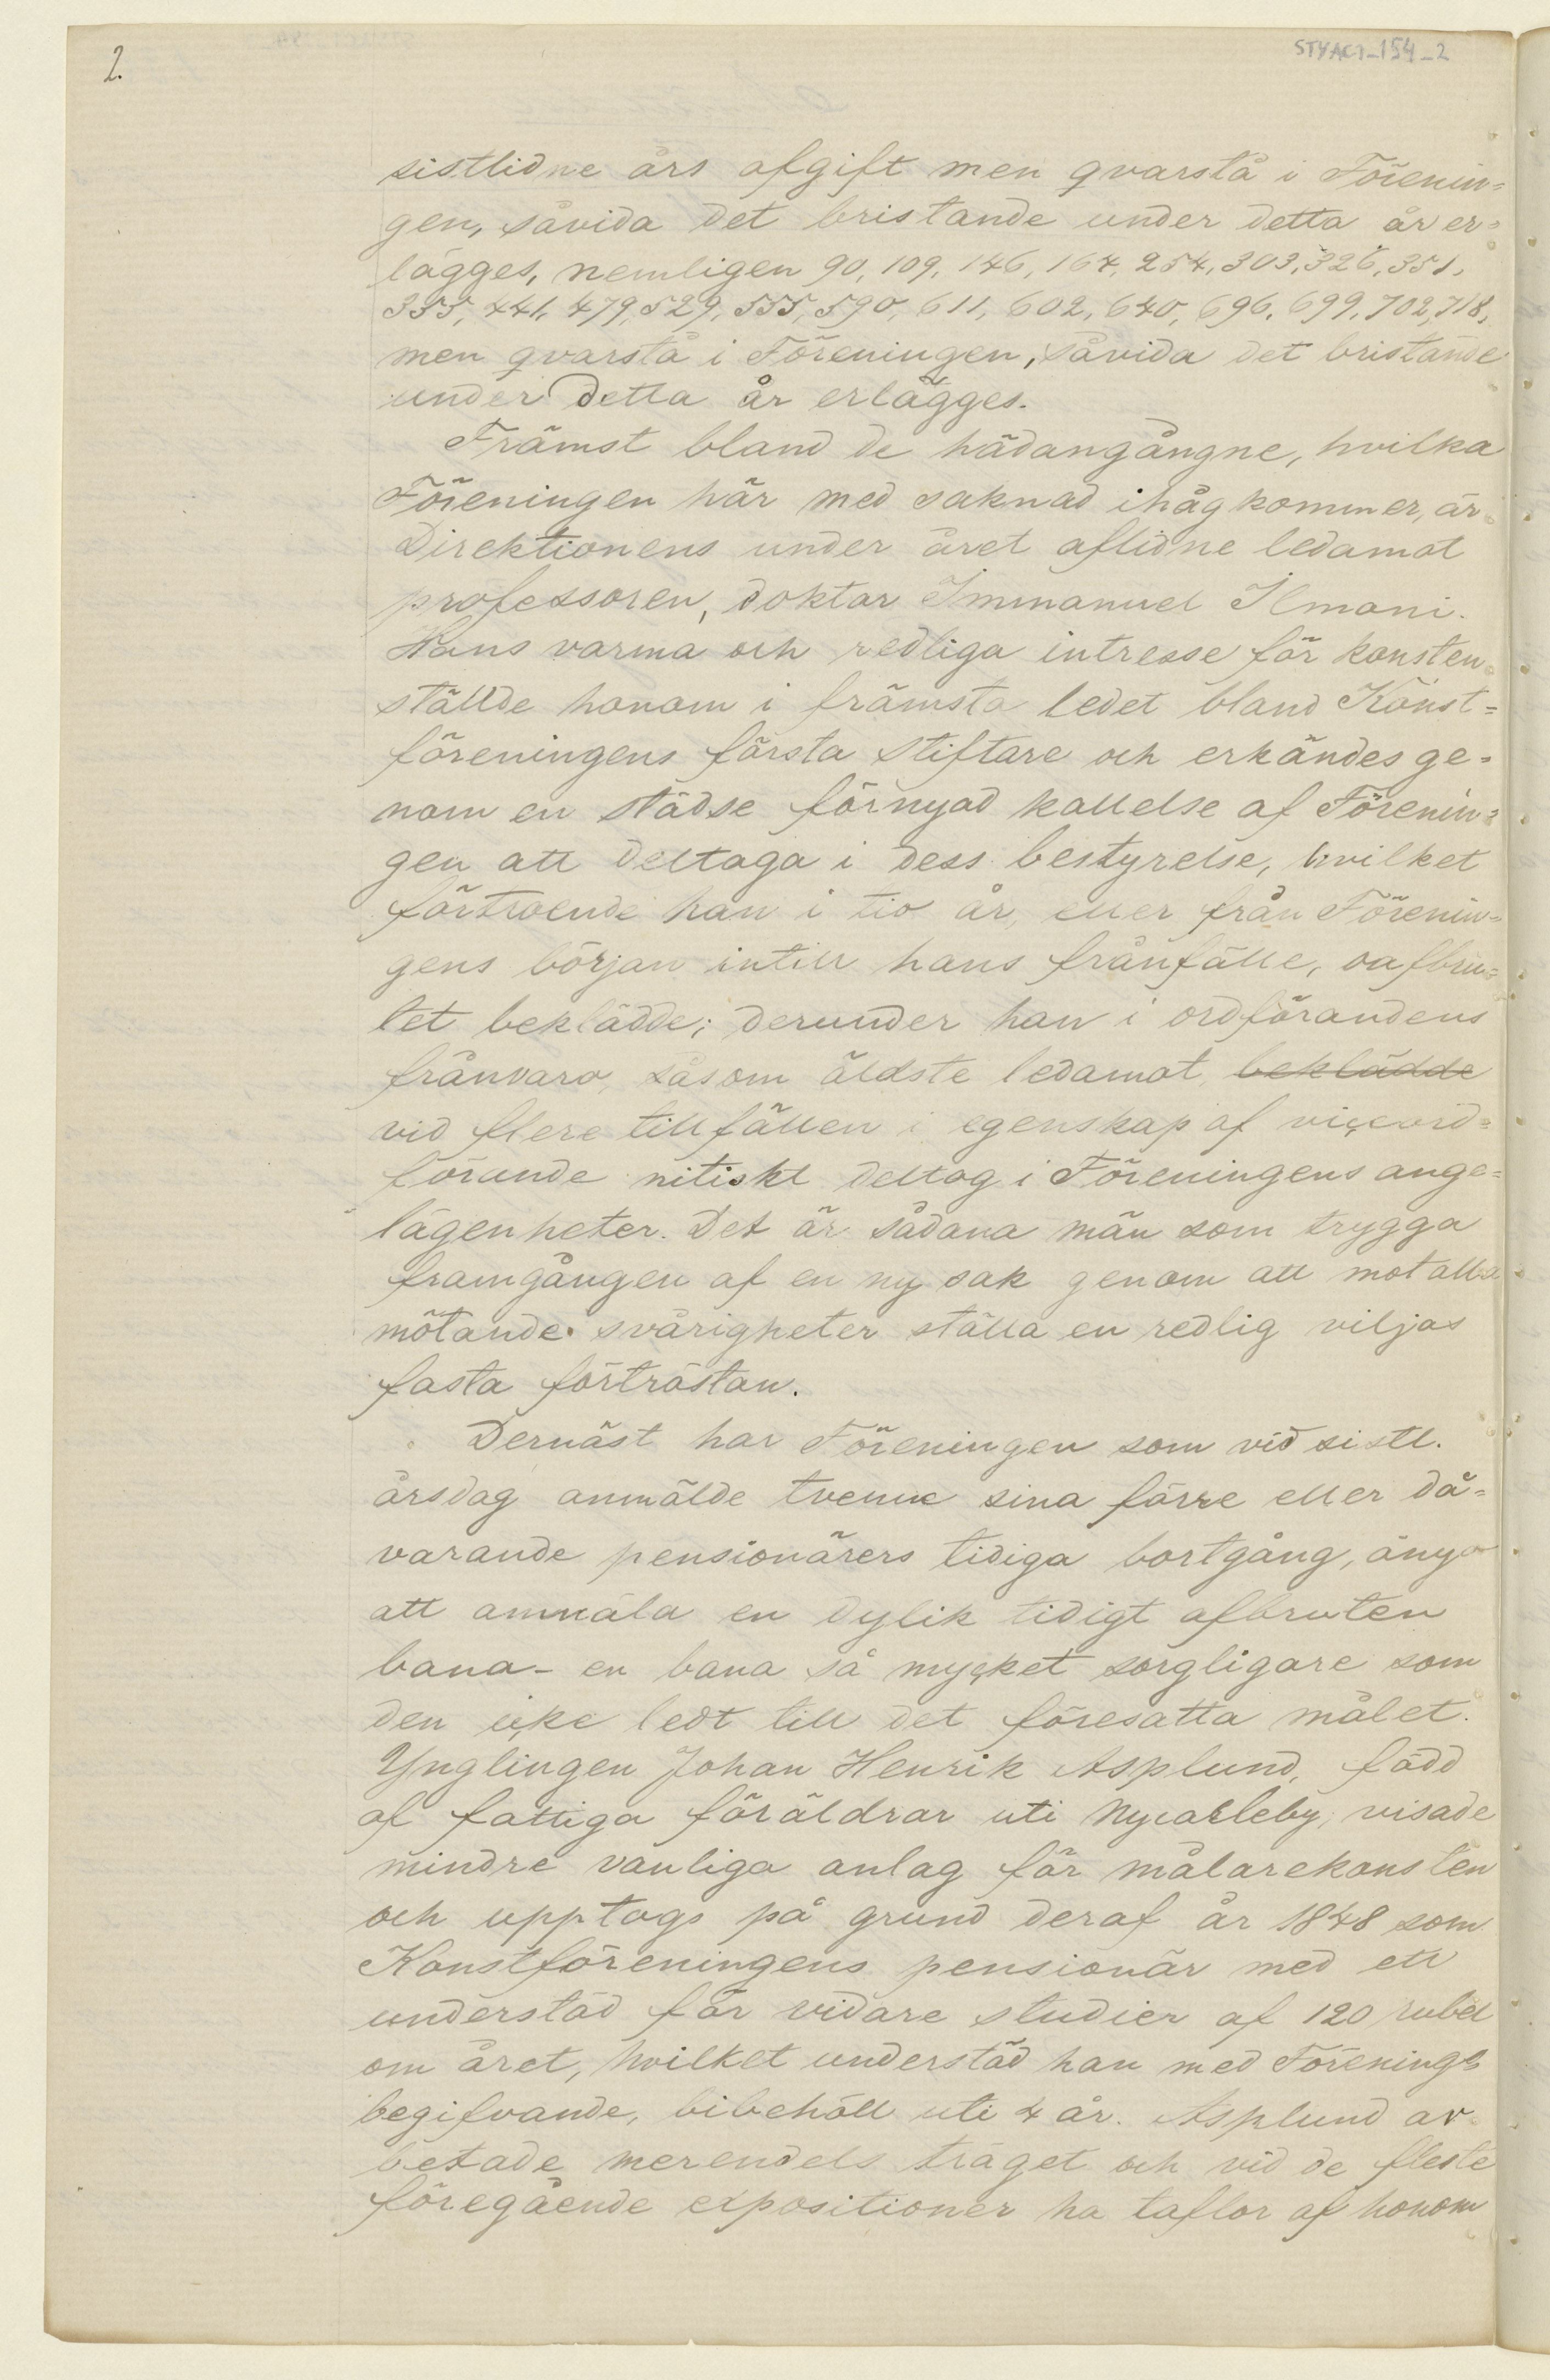 2.
STYACI-154-2
sistlidne års afgift men qvarstå i Förenin=
gen, såvida det bristande under detta år er=
lägges, nemligen 90, 109, 146, 164, 254, 303, 326, 351,
355, 441, 479, 529, 555, 590, 611, 602, 640, 696, 699, 702, 718,
men qvarstå i Föreningen, såvida det bristande
under detta år erlägges.
Främst bland de hädangångne, hvilka
Föreningen här med saknad ihågkommer, är
Direktionens under året aflidne ledamot
professoren, doktor Immanuel Ilmoni.
Hans varma och redliga intresse för konsten
ställde honom i främsta ledet bland Konst=
föreningens första stiftare och erkändes ge=
nom en städse förnyad kallelse af Förenin=
gen att deltaga i dess bestyrelse, hvilket
förtroende han i tio år, eller från Förenin=
gens början intill hans frånfälle, oafbru=
tet beklädde; derunder han i ordförandens
frånvaro, såsom äldste ledamot, beklädde
vid flere tillfällen i egenskap af viceord=
förande nitiskt deltog i Föreningens ange=
lägenheter. Det är sådana män som trygga
framgången af en ny sak genom att mot alla
mötande svårigheter ställa en redlig viljas
fasta förtröstan.
Dernäst har Föreningen som vid sistl.
årsdag anmälde tvenne sina förre eller då=
varande pensionärers tidiga bortgång, ånyo
att anmäla en dylik tidigt afbruten
bana - en bana så mycket sorgligare som
den icke ledt till det föresatta målet.
Ynglingen Johan Henrik Asplund, född
af fattiga föräldrar uti Nycarleby, visade
mindre vanliga anlag för målarekonsten
och upptogs på grund deraf år 1848 som
Konstföreningens pensionär med ett
understöd för vidare studier af 120 rubel
om året, hvilket understöd han med Förenings
begifvande, bibehöll uti 4 år. Asplund ar
betade merendels träget och vid de fleste
föregående expositioner ha taflor af honom